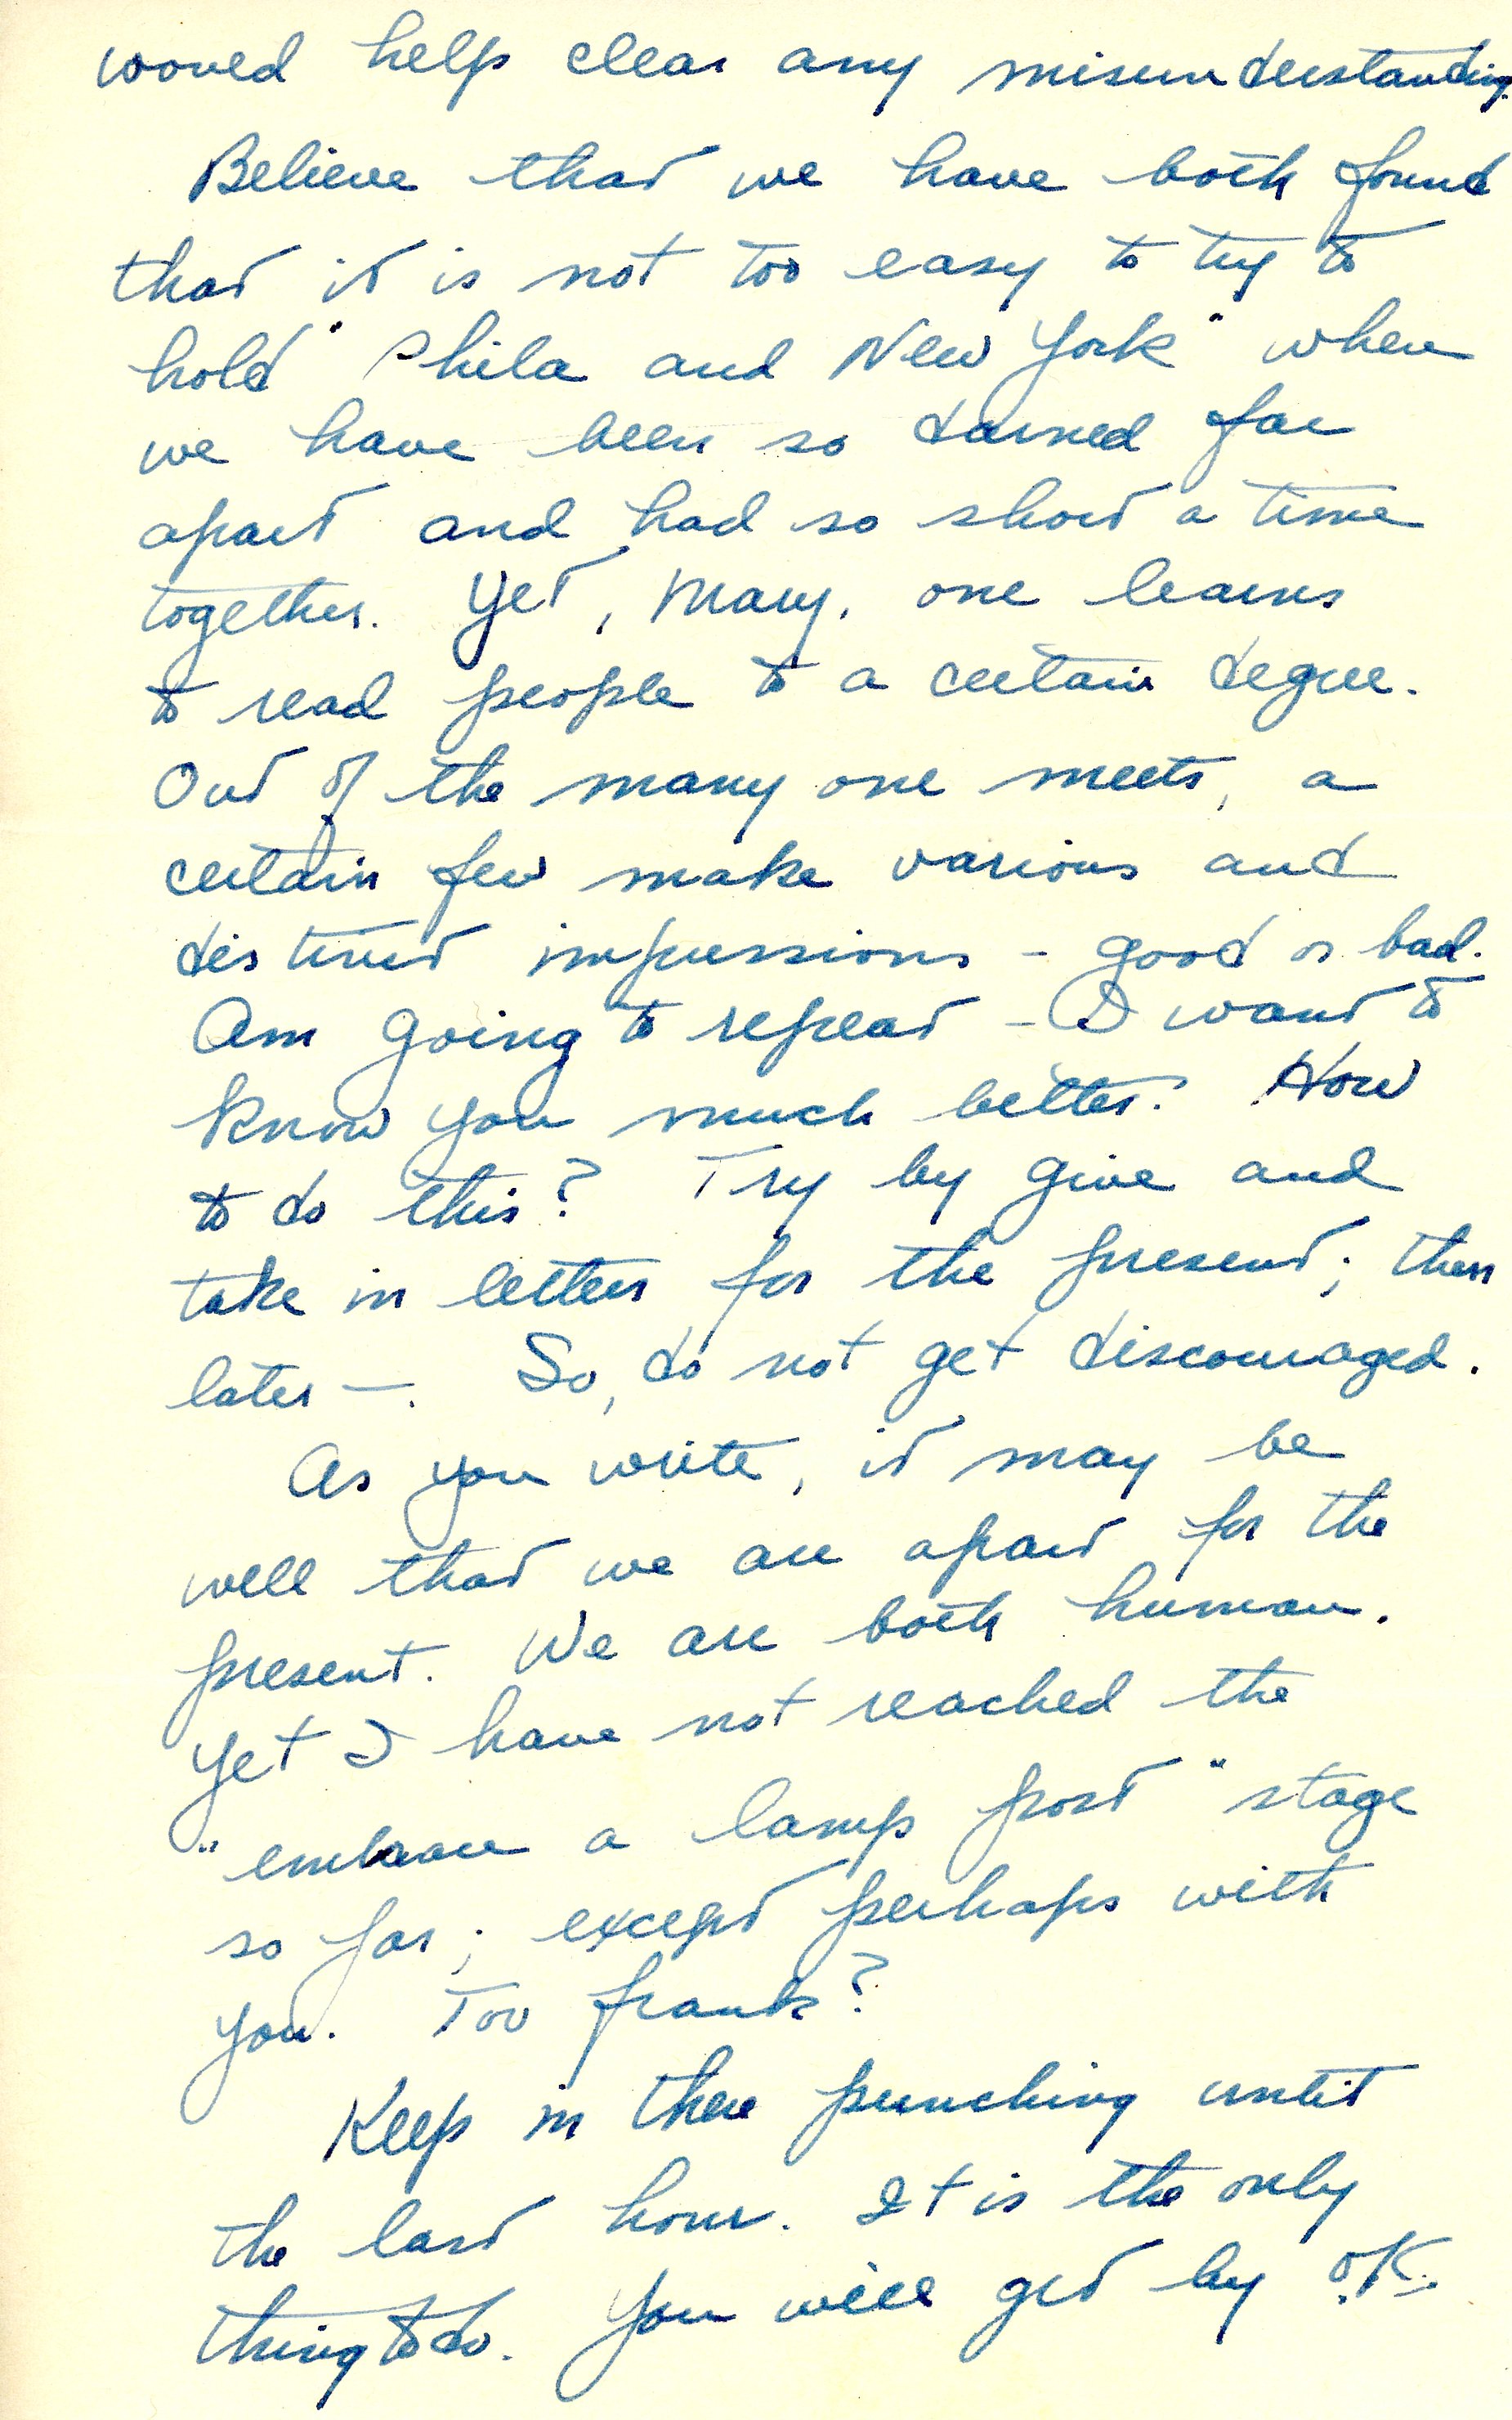 woued help clear any misunderstanding.
Believe that we have both found
that it is not too easy to try to
hold "Phila and New York" when
we have been so darned far
apart and had so short a time
together. Yet, Mary, one learns
to read people to a certain degree.
Out of the many one meets, a
certain few make various and
distinct impressions - good or bad.
Am going to repeat - I want to
know you much better. How
to do this? Try by give and
take in letters for the present; then
later —. So, do not get discouraged.
As you write, it may be
well that we are apart for the
present. We are both human.
Yet I have not reached the
"embrace a lamp post" stage
so far; except perhaps with
you. Too frank?
Keep in there punching until
the last hour. It is the only
thing to do. You will get by O.K.